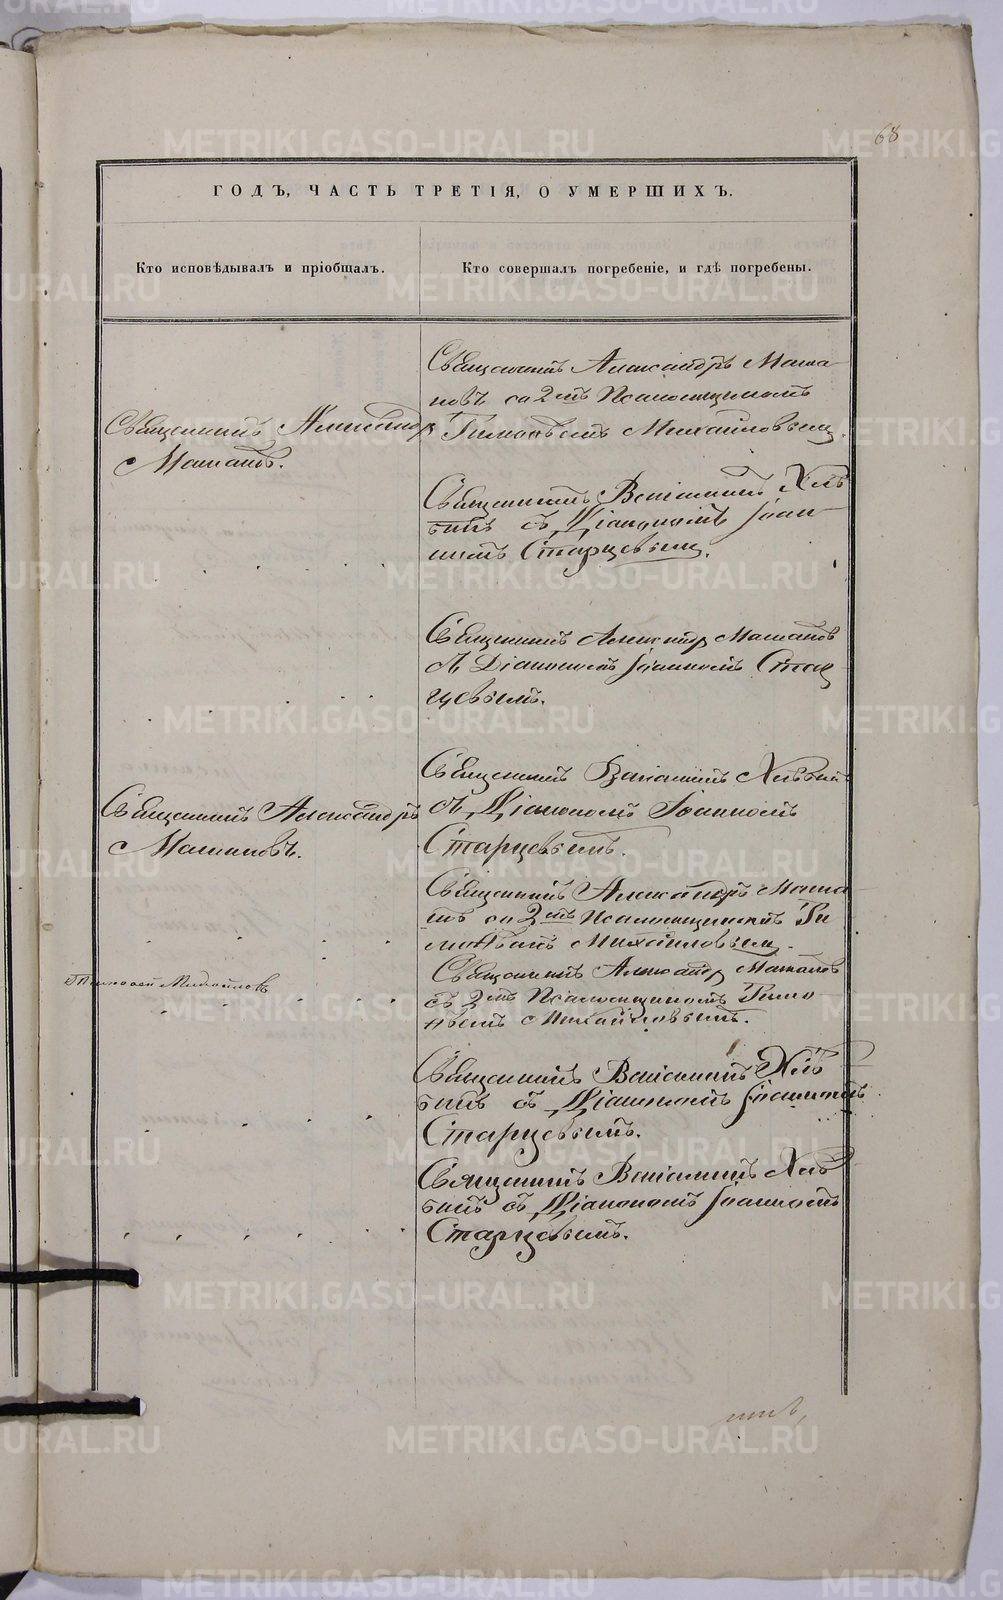 68
ГОДЪ, ЧАСТЬ ТРЕТІЯ, О УМЕРШИХЪ.
Кто исповѣдывалъ и пріобщалъ.
Кто совершалъ погребеніе, и гдѣ погребены.
Священникъ Александръ Маша-
новъ со 2мъ Псаломщикомъ
Тимофѣемъ Михайловымъ.
Священникъ Александръ
Машановъ.
Священникъ Веніаминъ Хлѣ-
бинъ съ Діакономъ Іоан-
номъ Старцевымъ.
Священникъ Александр Машановъ
съ Діакономъ Іоанномъ Стар-
цевымъ.
Священникъ Веніаминъ Хлѣбинъ
съ Діакономъ Іоанномъ
Старцевымъ.
Священникъ Александръ
Машановъ.
Священникъ Александръ Маша-
со 2мъ Псаломщикомъ Ти-
мофѣемъ Михайловымъ.
Священникъ Александр Машановъ
съ 2мъ Псаломщикомъ Тимо-
ѳѣемъ Михайловымъ.
Михайловъ
Священникъ Веніаминъ Хлѣ-
бинъ съ Діакономъ Іоанномъ
Старцевымъ.
Священникъ Веніаминъ Хлѣ-
бинъ съ Діакономъ Іоанномъ
Старцевымъ.
METRIKI.GASO-URAL.RU